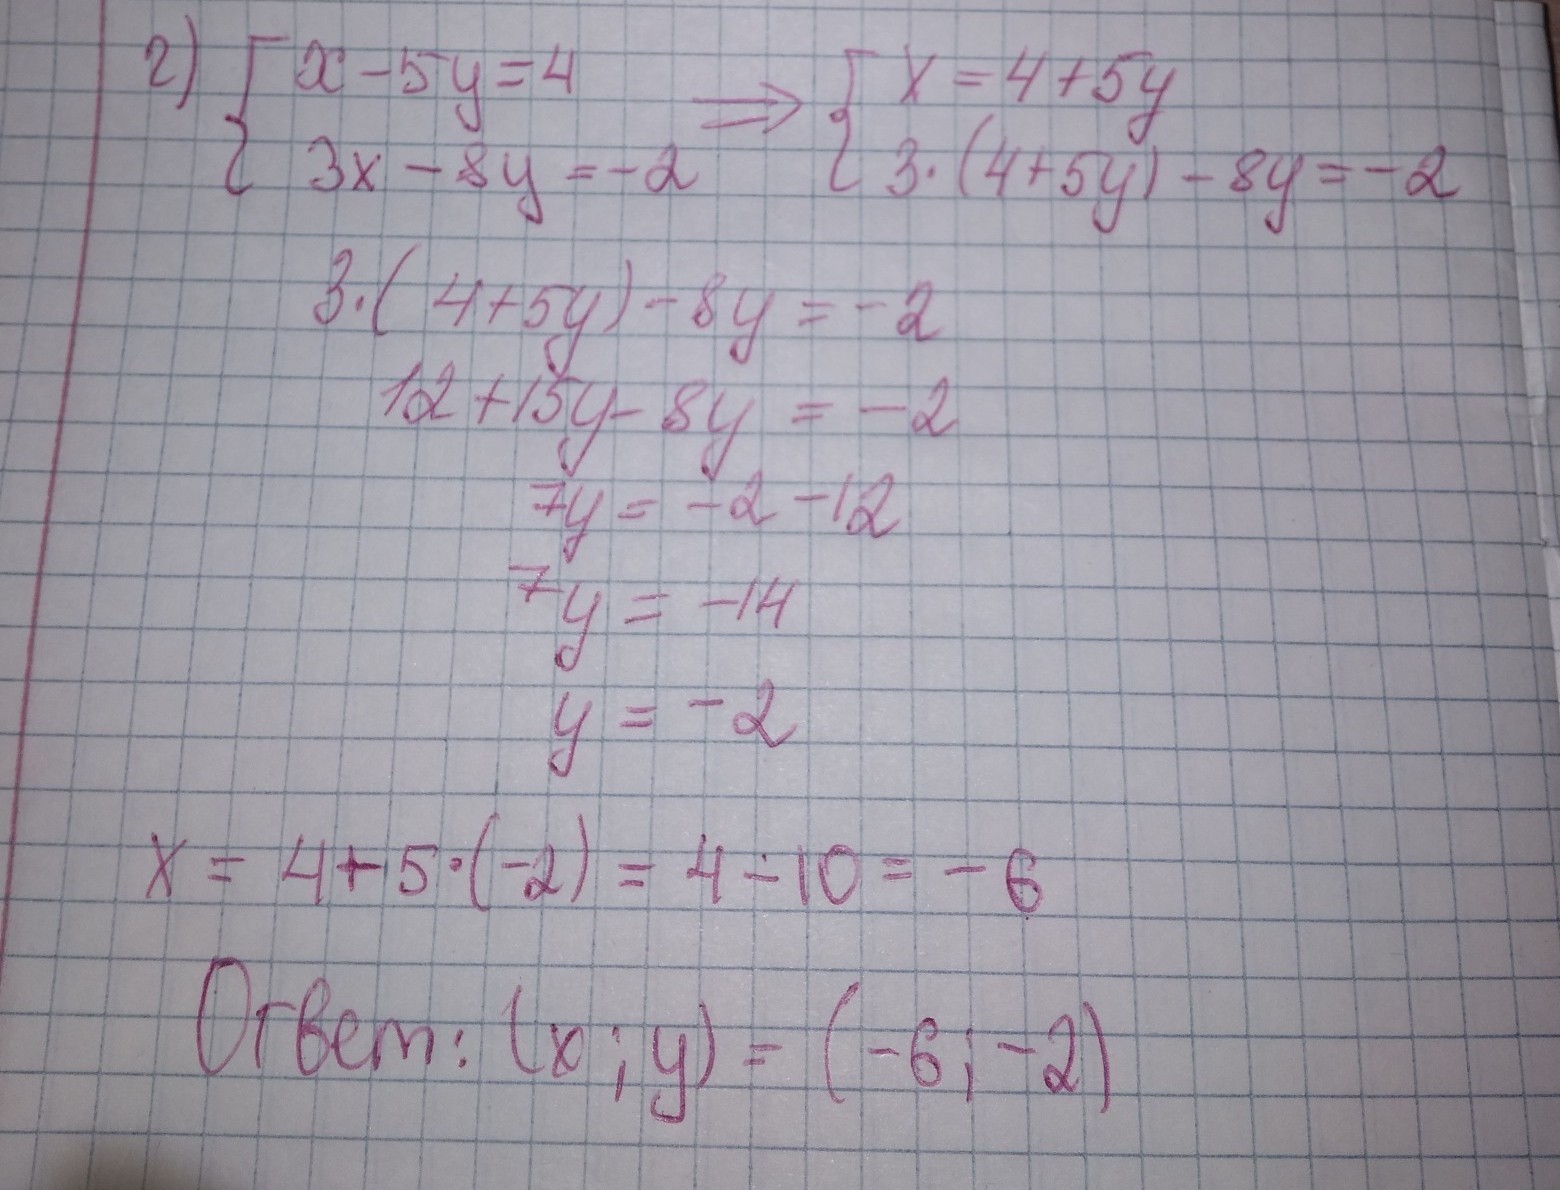 г) { x - 5y = 4 ⇒ { x = 4 + 5y
3x - 8y = -2 3·(4+5y) - 8y = -2
3·(4+5y) - 8y = -2
12 + 15y - 8y = -2
7y = -2 - 12
7y = -14
y = -2
x = 4 + 5·(-2) = 4 - 10 = -6
Ответ: (x; y) = (-6; -2)